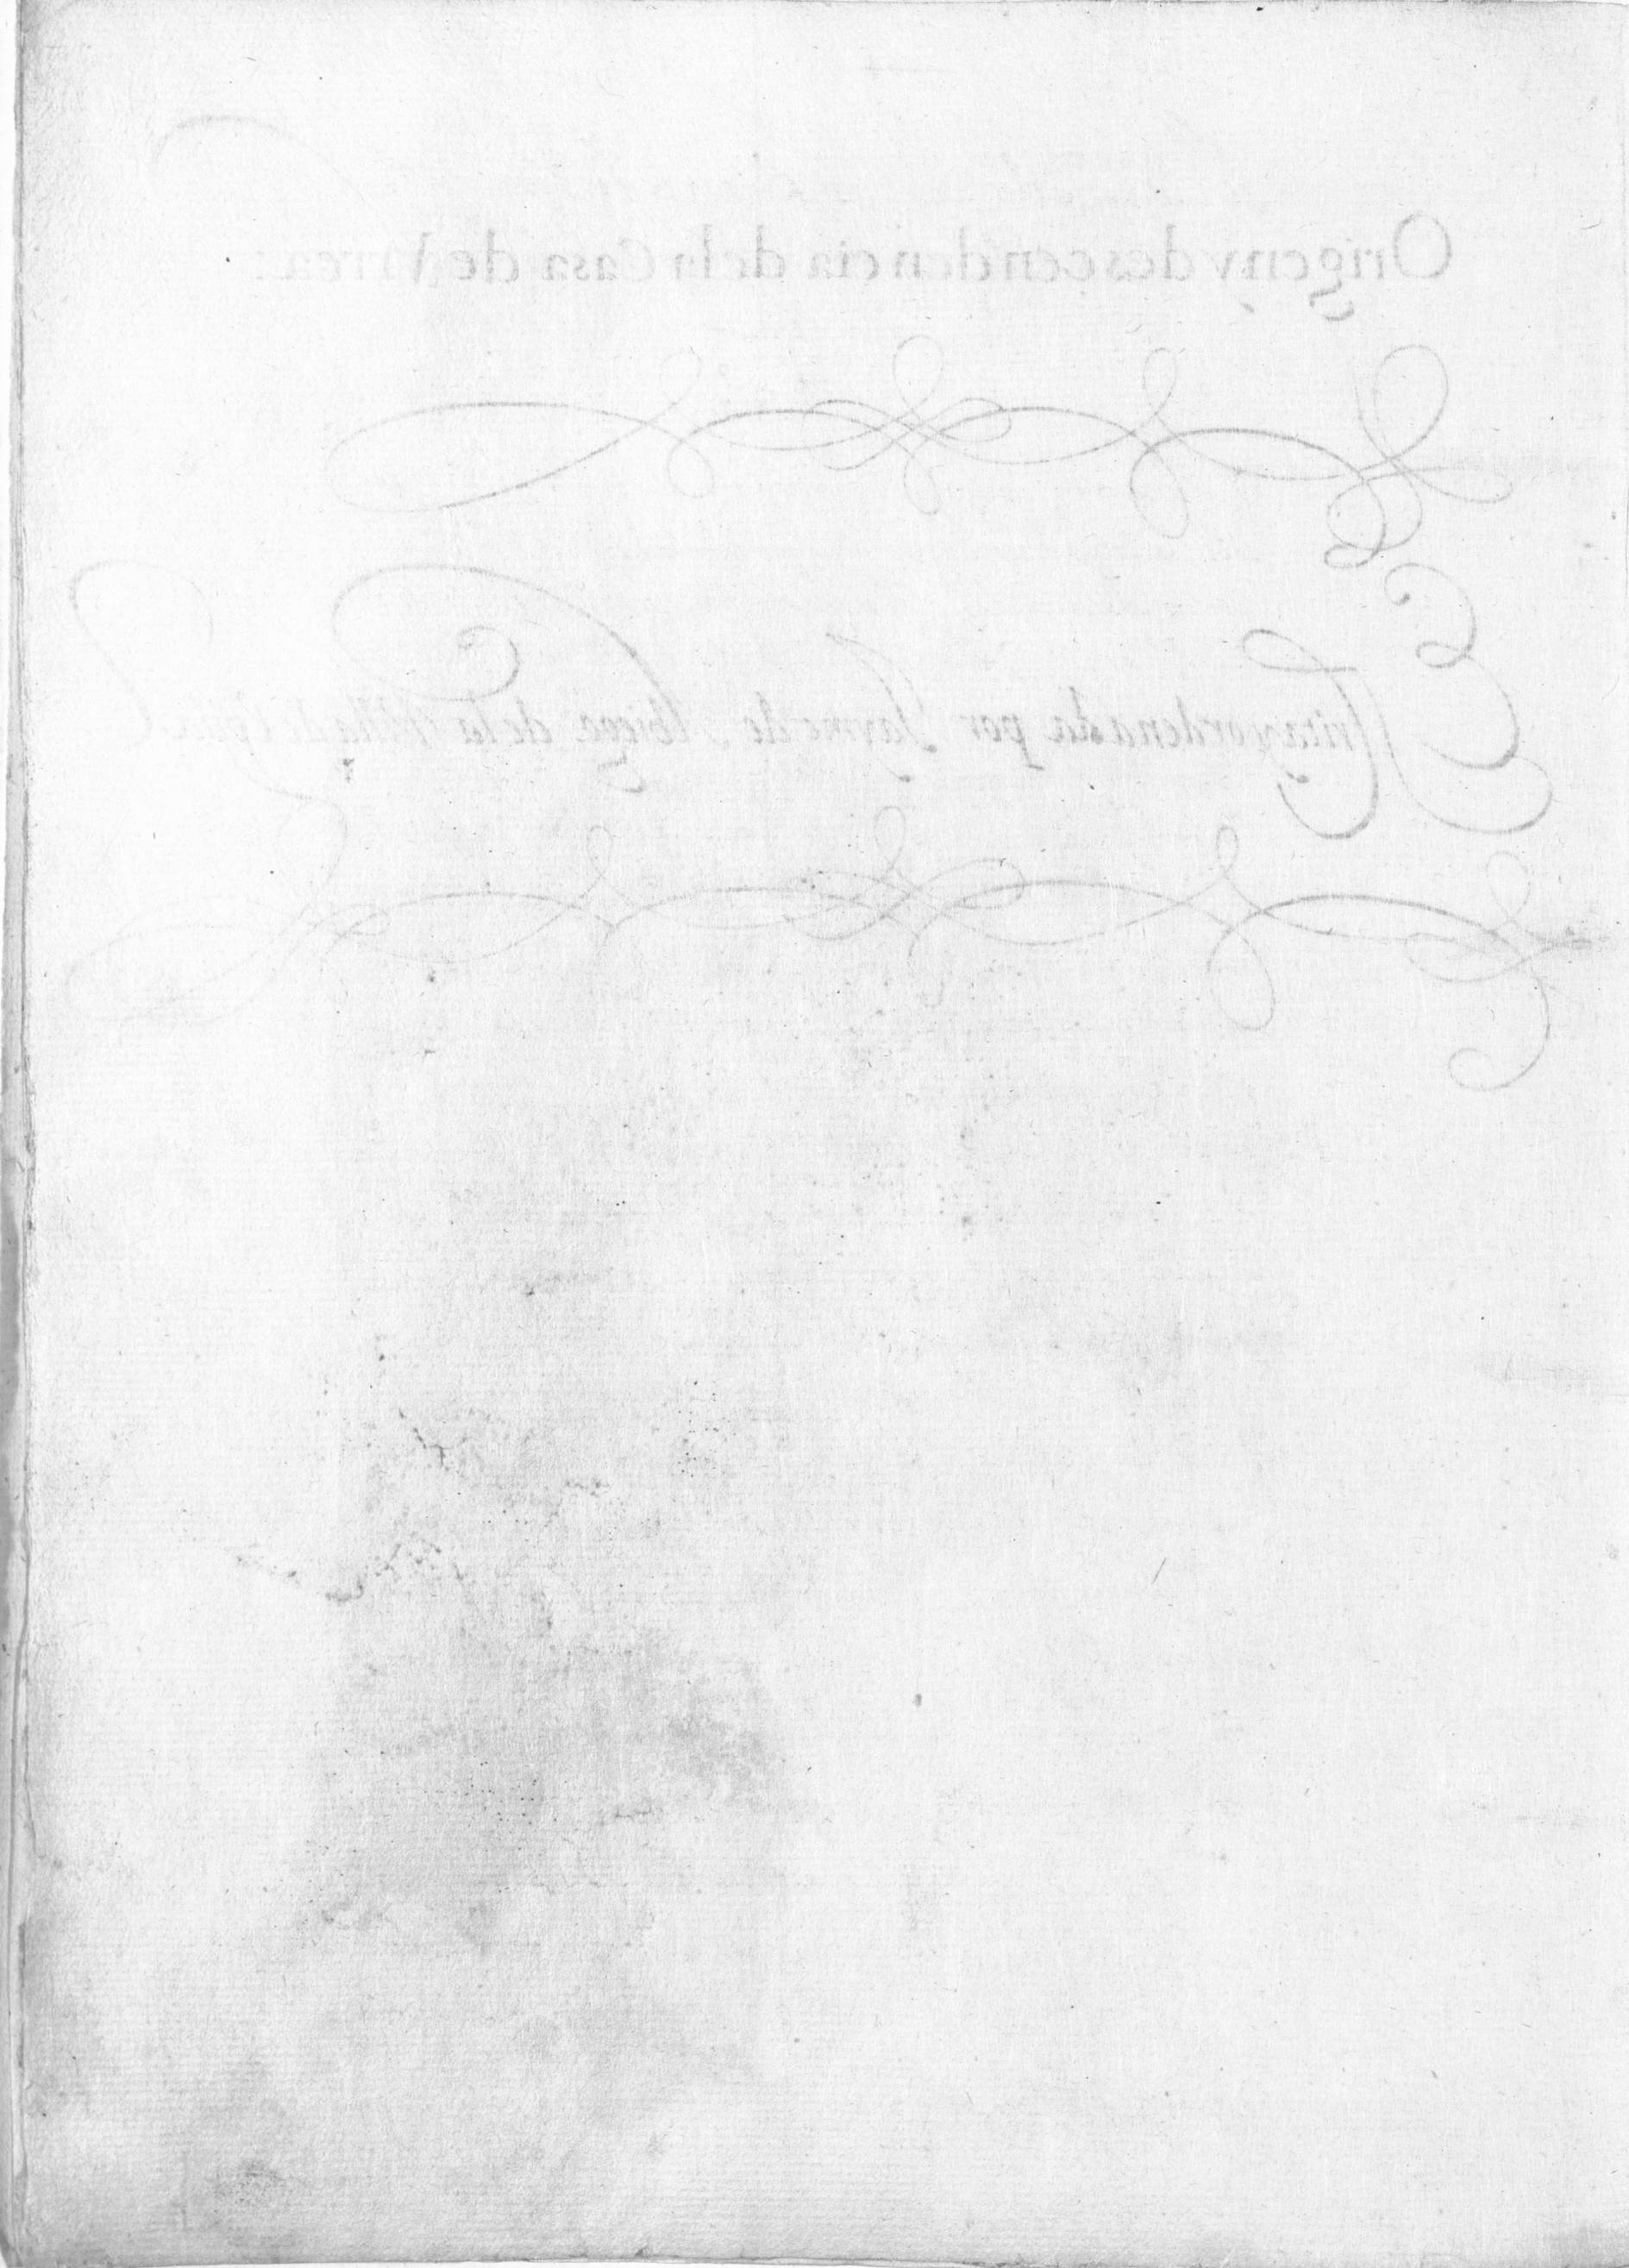 Origen y descendencia de la Casa de Vrrea:
Escrita y ordenada por Jayme de Albiça de la Villa de